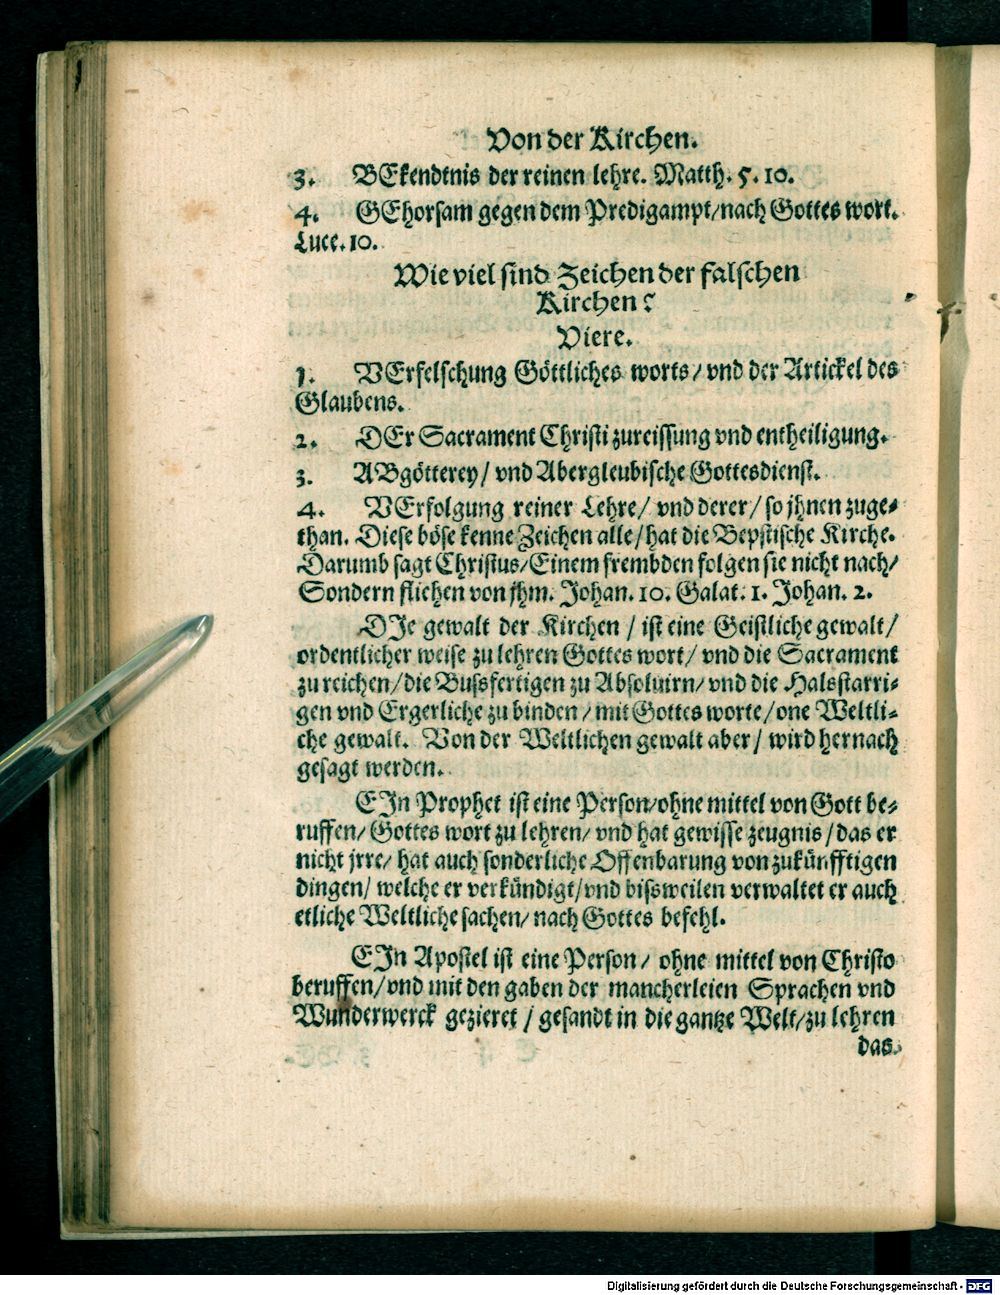 Von der Kirchen.
3. BEkendtnis der reinen lehre. Matth. 5. 10.
4. GEhorsam gegen dem Predigampt/nach Gottes wort.
Luce. 10.
Wie viel sind Zeichen der falschen
Kirchen?
Viere.
1. VErfelschung Göttliches worts/ vnd der Artickel des
Glaubens.
2. DEr Sacrament Christi zureissung vnd entheiligung.
3. ABgötterey/ vnd Abergleubische Gottesdienst.
4. VErfolgung reiner Lehre/ vnd derer/ so jhnen zuge-
than. Diese böse kenne Zeichen alle/ hat die Bepstische Kirche.
Darumb sagt Christus/ Einem frembden folgen sie nicht nach/
Sondern fliehen von jhm. Johan. 10. Galat. 1. Johan. 2.
DIe gewalt der Kirchen / ist eine Geistliche gewalt/
ordentlicher weise zu lehren Gottes wort/ vnd die Sacrament
zu reichen/ die Bussfertigen zu Absoluirn/ vnd die Halsstarri-
gen vnd Ergerliche zu binden / mit Gottes worte/ one Weltli-
che gewalt. Von der Weltlichen gewalt aber/ wird hernach
gesagt werden.
EIn Prophet ist eine Person/ohne mittel von Gott be-
ruffen/ Gottes wort zu lehren/ vnd hat gewisse zeugnis / das er
nicht jrre/ hat auch sonderliche Offenbarung von zukünfftigen
dingen/ welche er verkündigt/vnd bissweilen verwaltet er auch
etliche Weltliche sachen/ nach Gottes befehl.
EIn Apostel ist eine Person/ ohne mittel von Christo
beruffen/ vnd mit den gaben der mancherleien Sprachen vnd
Wunderwerck gezieret / gesandt in die gantze Welt/ zu lehren
das
Digitalisierung gefördert durch die Deutsche Forschungsgemeinschaft - DFG